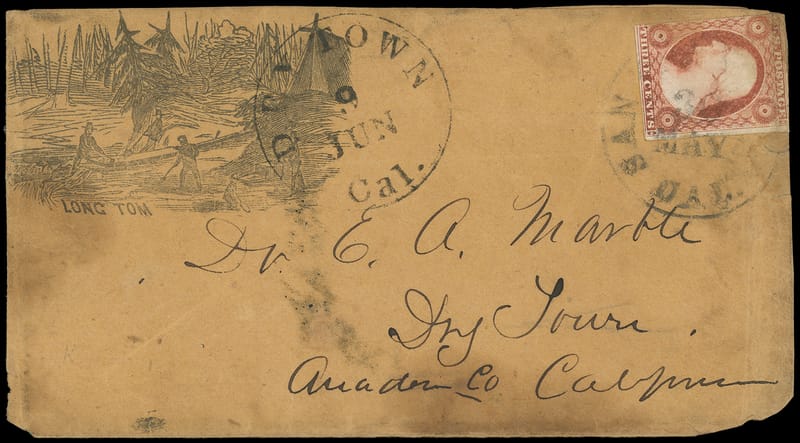 DRY TOWN
9
JUN
Cal.
LONG TOM
U.S. POSTAGE
THREE CENTS
SAN
MAY
CAL.
Dr E. A. Marble
Dry Town.
Amador Co California